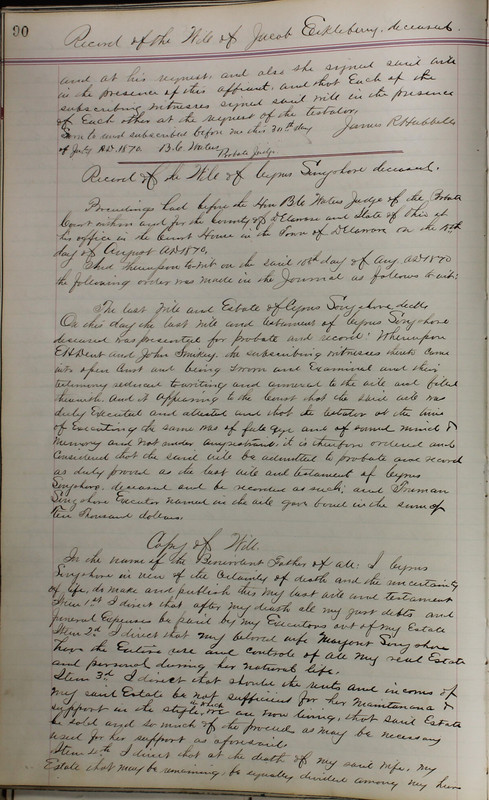 90
Record of the Will of Jacob Eickleberry, deceased.
and at his request, and also she signed said will
in the presence of this affiant, and that Each of the
subscribing witnesses signed said will in the presence
of Each other at the request of the testator,
Sworn to and subscribed before me this 20th day James R Hubbell
of July AD. 1870. B.C. Waters
Probate Judge.
Record of the Will of Cyrus Singshore deceased.
Proceedings had before the Hon B.C. Waters Judge of the Probate
Court within and for the County of Delaware and State of Ohio at
his office in the Court House in the Town of Delaware on the 10th
day of August AD 1870.
And thereupon to wit on the said 10th day of Aug. AD. 1870
the following order was made in the Journal as follows to wit:
The last Will and Estate of Cyrus Singshore decd.
On this day the last will and testament of Cyrus Singshore
deceased was presented for probate and record: Whereupon
and John the subscribing witnesses thereto came
into open Court and being sworn and Examined and their
testimony reduced to writing and annexed to the will and filed
therewith and it appearing to the Court that the said will was
duly Executed and attested and that the testator at the time
of Executing the same was of full age and of sound mind &
Memory and not under any restraint. it is therefore ordered and
Considered that the said will be admitted to probate and record
as duly proved as the last will and testament of Cyrus
Singshore, deceased and be recorded as such; and Truman
Singshore Executor named in the will gave bond in the sum of
Ten Thousand dollars.
Copy of Will.
In the name of the Benevolent Father of all: I Cyrus
Singshore in view of the Certainty of death and the uncertainty
of life, do make and publish this my last will and testament
Item 1st I direct that after my death all my just debts and
funeral Expenses be paid by my Executors out of my Estate
Item 2d I direct that my beloved wife Margaret Singshore
have the Entire use and controle of all my real Estate
and personal during her natural life.
Item 3d I direct that should the rents and incomes of
my said Estate be not sufficient for her Maintenance &
support in the style in which we are now living, that said Estate
be sold and so much of the proceeds as may be necessary
used for her support as aforesaid.
Item 4th I direct that at the death of my said wife, my
Estate that may be remaining, be equally divided among my heirs